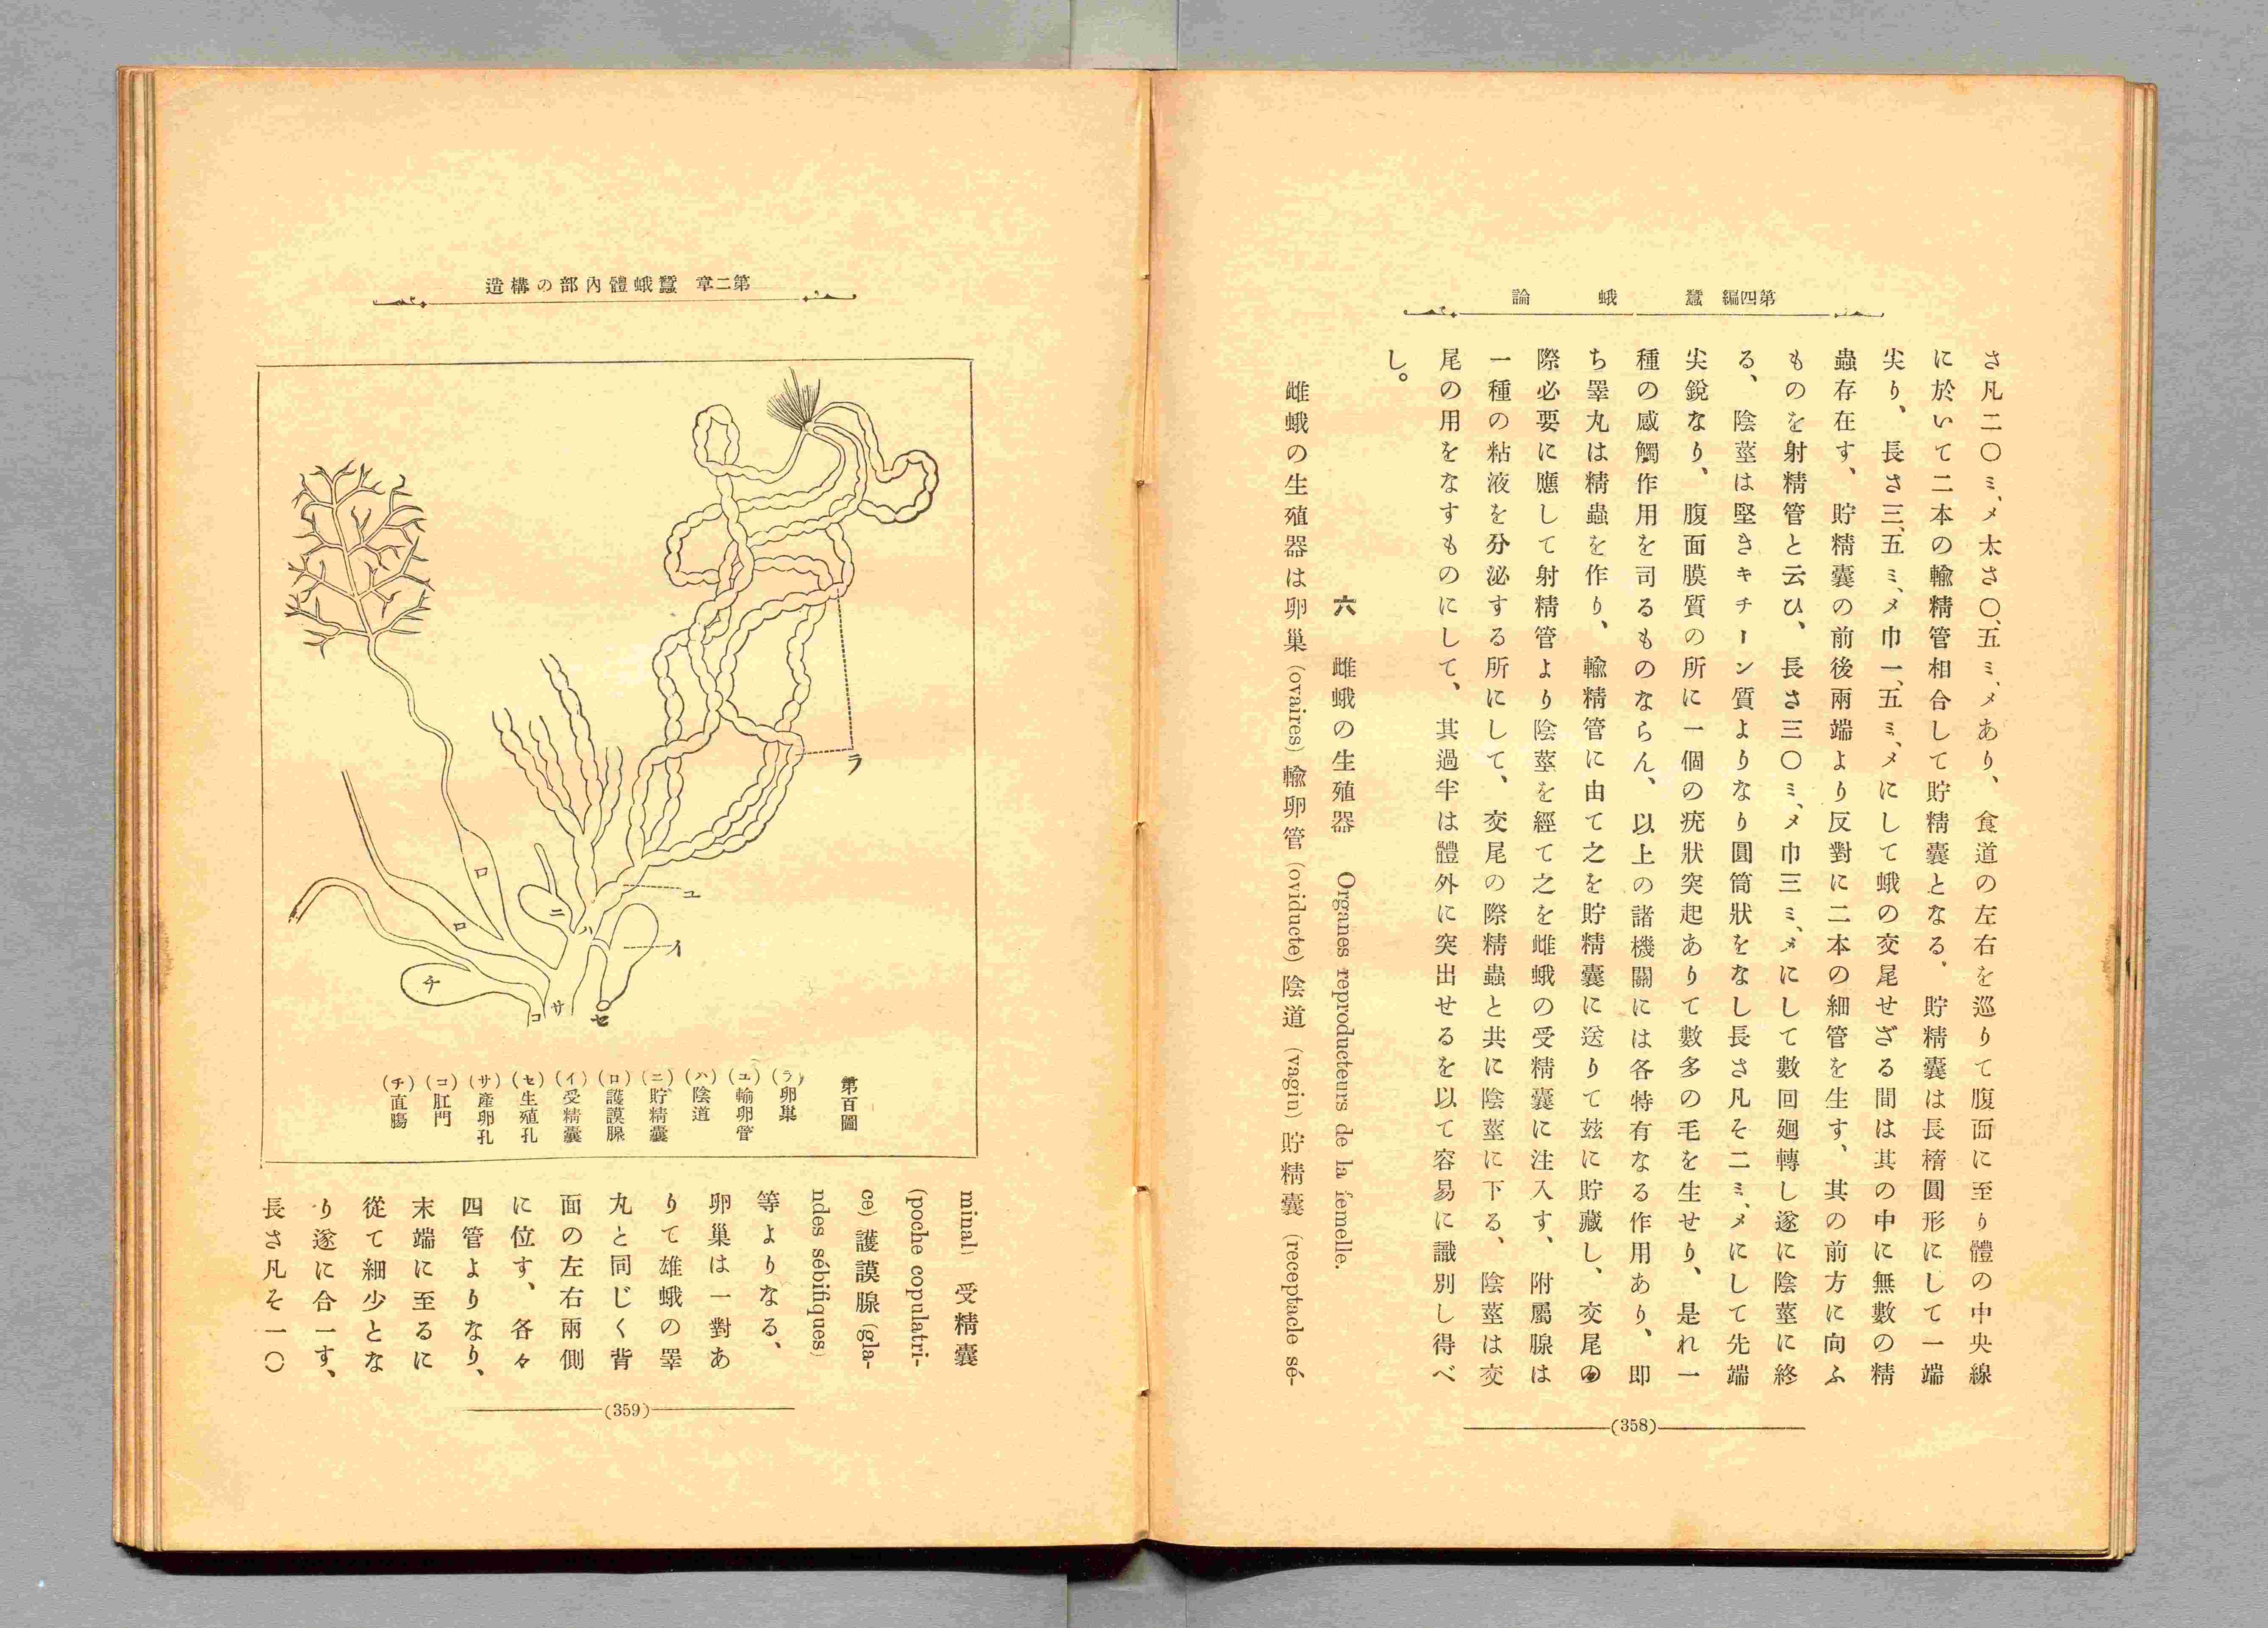 第四編　蠶蛾論
さ凡二〇ミ、メ太さ〇、五ミ、メあり、食道の左右を巡りて腹面に至り體の中央線
に於いて二本の輸精管相合して貯精囊となる、貯精囊は長橢圓形にして一端
尖り、長さ三、五ミ、メ巾一、五ミ、メにして蛾の交尾せざる間は其の中に無數の精
蟲存在す、貯精囊の前後兩端より反對に二本の細管を生す、其の前方に向ふ
ものを射精管と云ひ、長さ三〇ミ、メ巾三ミ、メにして數回廻轉し遂に陰莖に終
る、陰莖は堅きキチーン質よりなり圓筒狀をなし長さ凡そ二ミ、メにして先端
尖銳なり、腹面膜質の所に一個の疣狀突起ありて數多の毛を生せり、是れ一
種の感觸作用を司るものならん、以上の諸機關には各特有なる作用あり、即
ち睪丸は精蟲を作り、輸精管に由て之を貯精囊に送りて玆に貯藏し、交尾の
際必要に應して射精管より陰莖を經て之を雌蛾の受精囊に注入す、附屬腺は
一種の粘液を分泌する所にして、交尾の際精蟲と共に陰莖に下る、陰莖は交
尾の用をなすものにして、其過半は體外に突出せるを以て容易に識別し得べ
し。
六　雌蛾の生殖器　Organes reproducteurs de la femelle.
雌蛾の生殖器は卵巢 (ovaires) 輸卵管 (oviducte) 陰道 (vagin) 貯精囊 (receptacle sé-
(358)
第二章　蠶蛾體內部の構造
ラ
ユ
イ
ロ
ロ
ニ
ハ
チ
サ
コ
セ
第百圖
(ラ)卵巢
(ユ)輸卵管
(ハ)陰道
(ニ)貯精囊
(ロ)護謨腺
(イ)受精囊
(セ)生殖孔
(サ)產卵孔
(コ)肛門
(チ)直腸
minal) 受精囊
(poche copulatri-
ce) 護謨腺 (gla-
ndes sébifiques)
等よりなる、
卵巢は一對あ
りて雄蛾の睪
丸と同じく背
面の左右兩側
に位す、各々
四管よりなり、
末端に至るに
從て細少とな
り遂に合一す、
長さ凡そ一〇
(359)